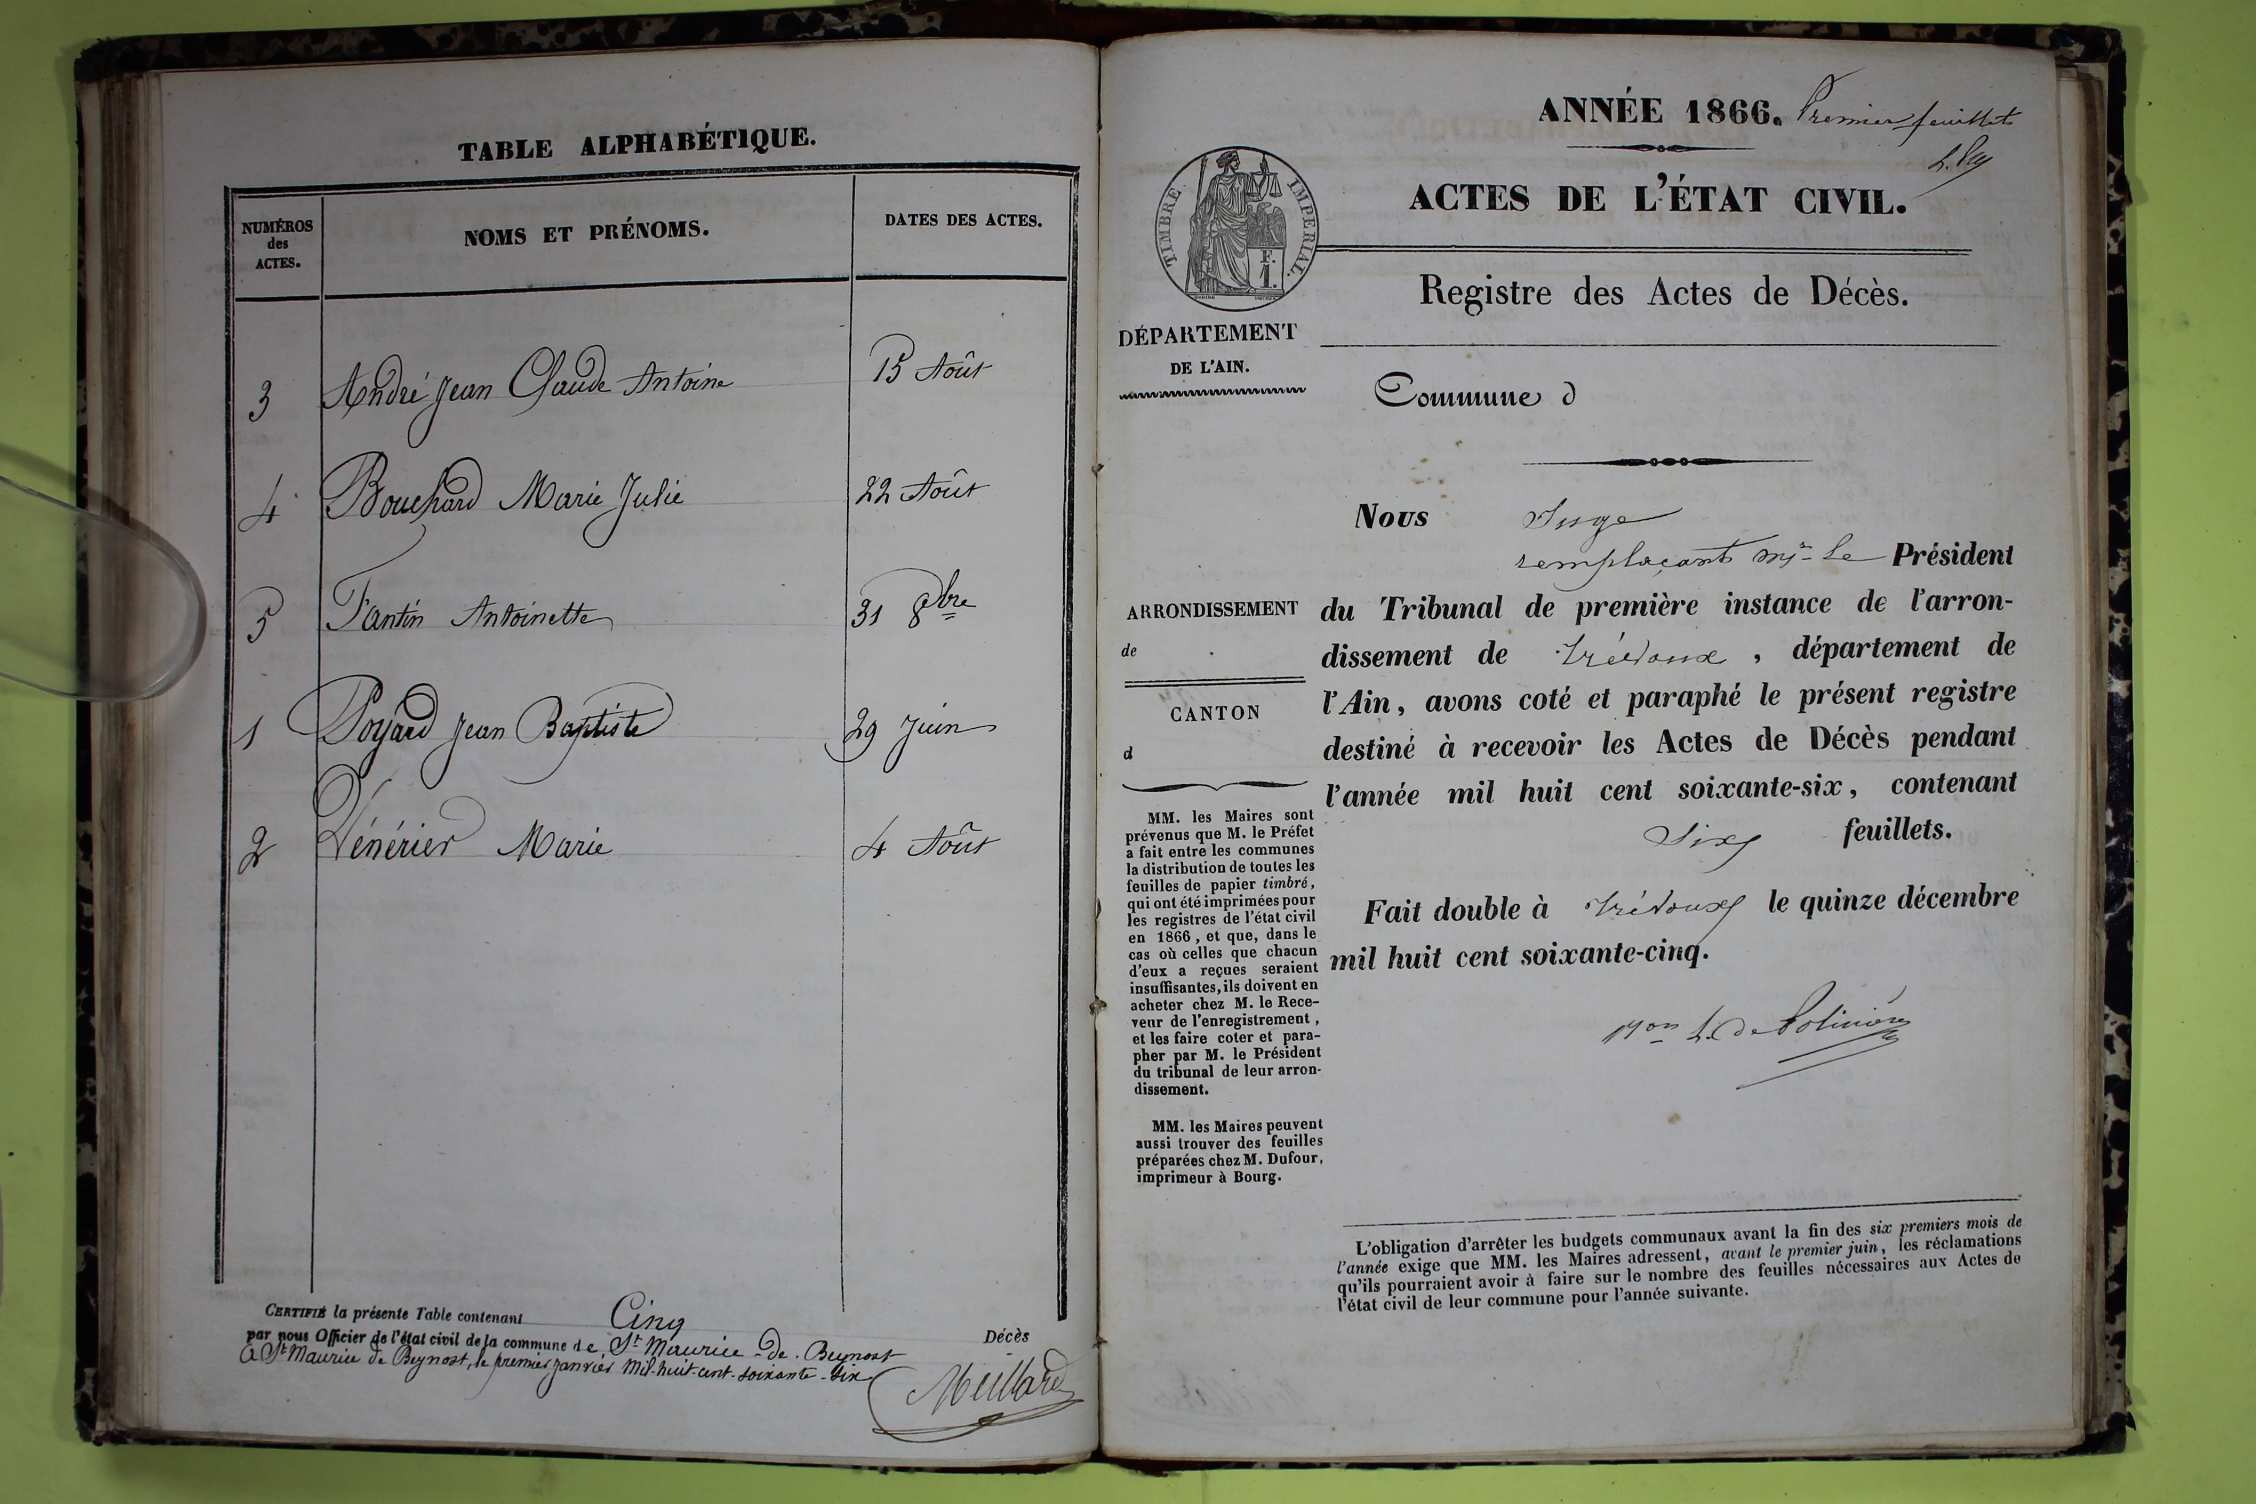 TABLE ALPHABÉTIQUE.
NUMÉROS des ACTES.
NOMS ET PRÉNOMS.
DATES DES ACTES.
3 André Jean Claude Antoine 15 Août
4 Bouchard Marie Julie 22 Août
5 Fantin Antoinette 31 8bre
1 Poyard Jean Baptiste 29 Juin
2 Vénérier Marie 4 Août
CERTIFIÉ la présente Table contenant Cinq Décès
par nous Officier de l'état civil de la commune de St Maurice de Beynost
A St Maurice de Beynost, le premier janvier mil-huit-cent-soixante-six
Meillard
ANNÉE 1866. Premier feuillet
ACTES DE L'ÉTAT CIVIL.
TIMBRE IMPERIAL.
F.
1.
Registre des Actes de Décès.
DÉPARTEMENT
DE L'AIN.
Commune d
Nous Juge
remplaçant Mr le Président
du Tribunal de première instance de l'arron-
dissement de Trévoux, département de
l'Ain, avons coté et paraphé le présent registre
destiné à recevoir les Actes de Décès pendant
l'année mil huit cent soixante-six, contenant
Six feuillets.
Fait double à Trévoux le quinze décembre
mil huit cent soixante-cinq.
de Polinière
ARRONDISSEMENT
de
CANTON
d
MM. les Maires sont
prévenus que M. le Préfet
a fait entre les communes
la distribution de toutes les
feuilles de papier timbré,
qui ont été imprimées pour
les registres de l'état civil
en 1866, et que, dans le
cas où celles que chacun
d'eux a reçues seraient
insuffisantes, ils doivent en
acheter chez M. le Rece-
veur de l'enregistrement,
et les faire coter et para-
pher par M. le Président
du tribunal de leur arron-
dissement.
MM. les Maires peuvent
aussi trouver des feuilles
préparées chez M. Dufour,
imprimeur à Bourg.
L'obligation d'arrêter les budgets communaux avant la fin des six premiers mois de
l'année exige que MM. les Maires adressent, avant le premier juin, les réclamations
qu'ils pourraient avoir à faire sur le nombre des feuilles nécessaires aux Actes de
l'état civil de leur commune pour l'année suivante.